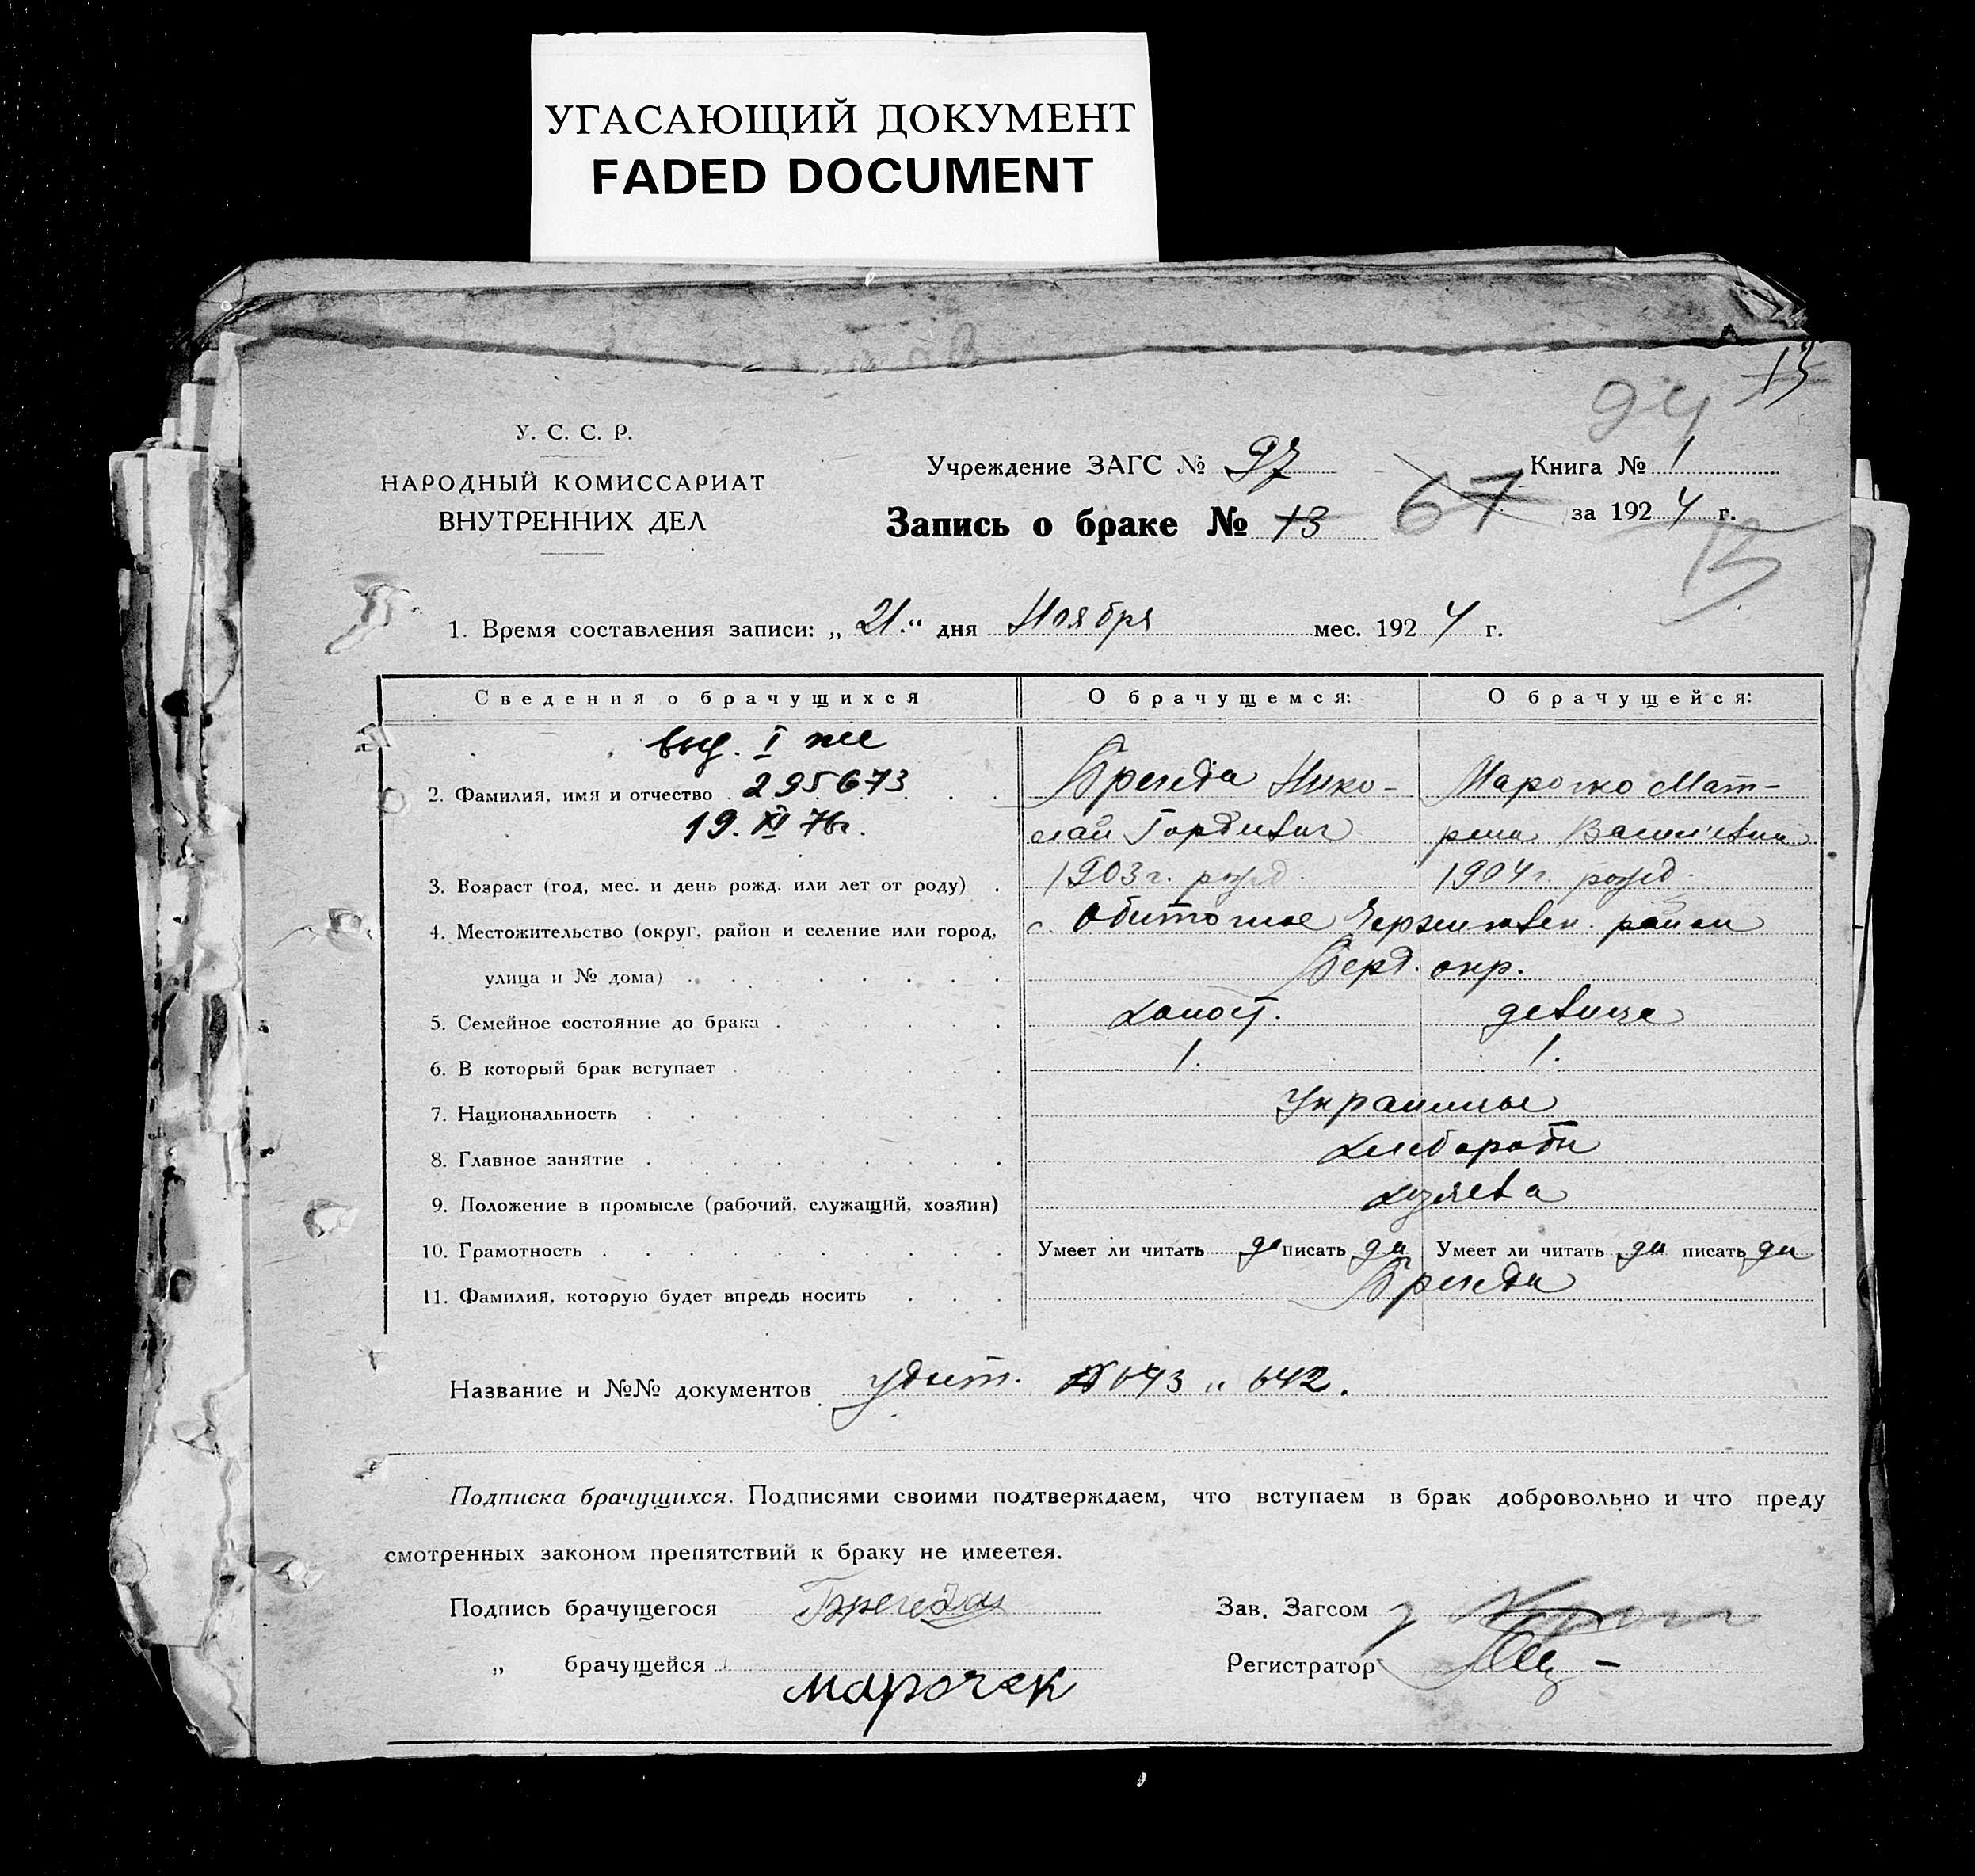 УГАСАЮЩИЙ ДОКУМЕНТ
FADED DOCUMENT
13
94
У. С. С. Р.
НАРОДНЫЙ КОМИССАРИАТ
ВНУТРЕННИХ ДЕЛ
Учреждение ЗАГС № 97
Книга № 1
Запись о браке № 13 67
за 1924 г.
13
1. Время составления записи: „21.“ дня Ноября мес. 1924 г.
Сведения о брачущихся О брачущемся: О брачущейся:
выд. I же
2. Фамилия, имя и отчество 295673
19. XI 76г.
Бренда Нико-
лай Гордиевич
Марочко Мат-
рена Васильевна
3. Возраст (год, мес. и день рожд. или лет от роду) 1903 г. рожд. 1904 г. рожд.
4. Местожительство (округ, район и селение или город, с. Обиточное район
улица и № дома) Берд. окр.
5. Семейное состояние до брака холост. девица
6. В который брак вступает 1. 1.
7. Національность Украинцы
8. Главное занятие хлебороби
9. Положение в промысле (рабочий, служащий, хозяин) хозяева
10. Грамотность Умеет ли читать да писать да Умеет ли читать да писать да
11. Фамилия, которую будет впредь носить Бренда
Название и №№ документов удост. № 643 и 642.
Подписка брачущихся. Подписями своими подтверждаем, что вступаем в брак добровольно и что преду
смотренных законом препятствий к браку не имеется.
Подпись брачущегося Бренда
Зав. Загсом
„ брачущейся марочек
Регистратор